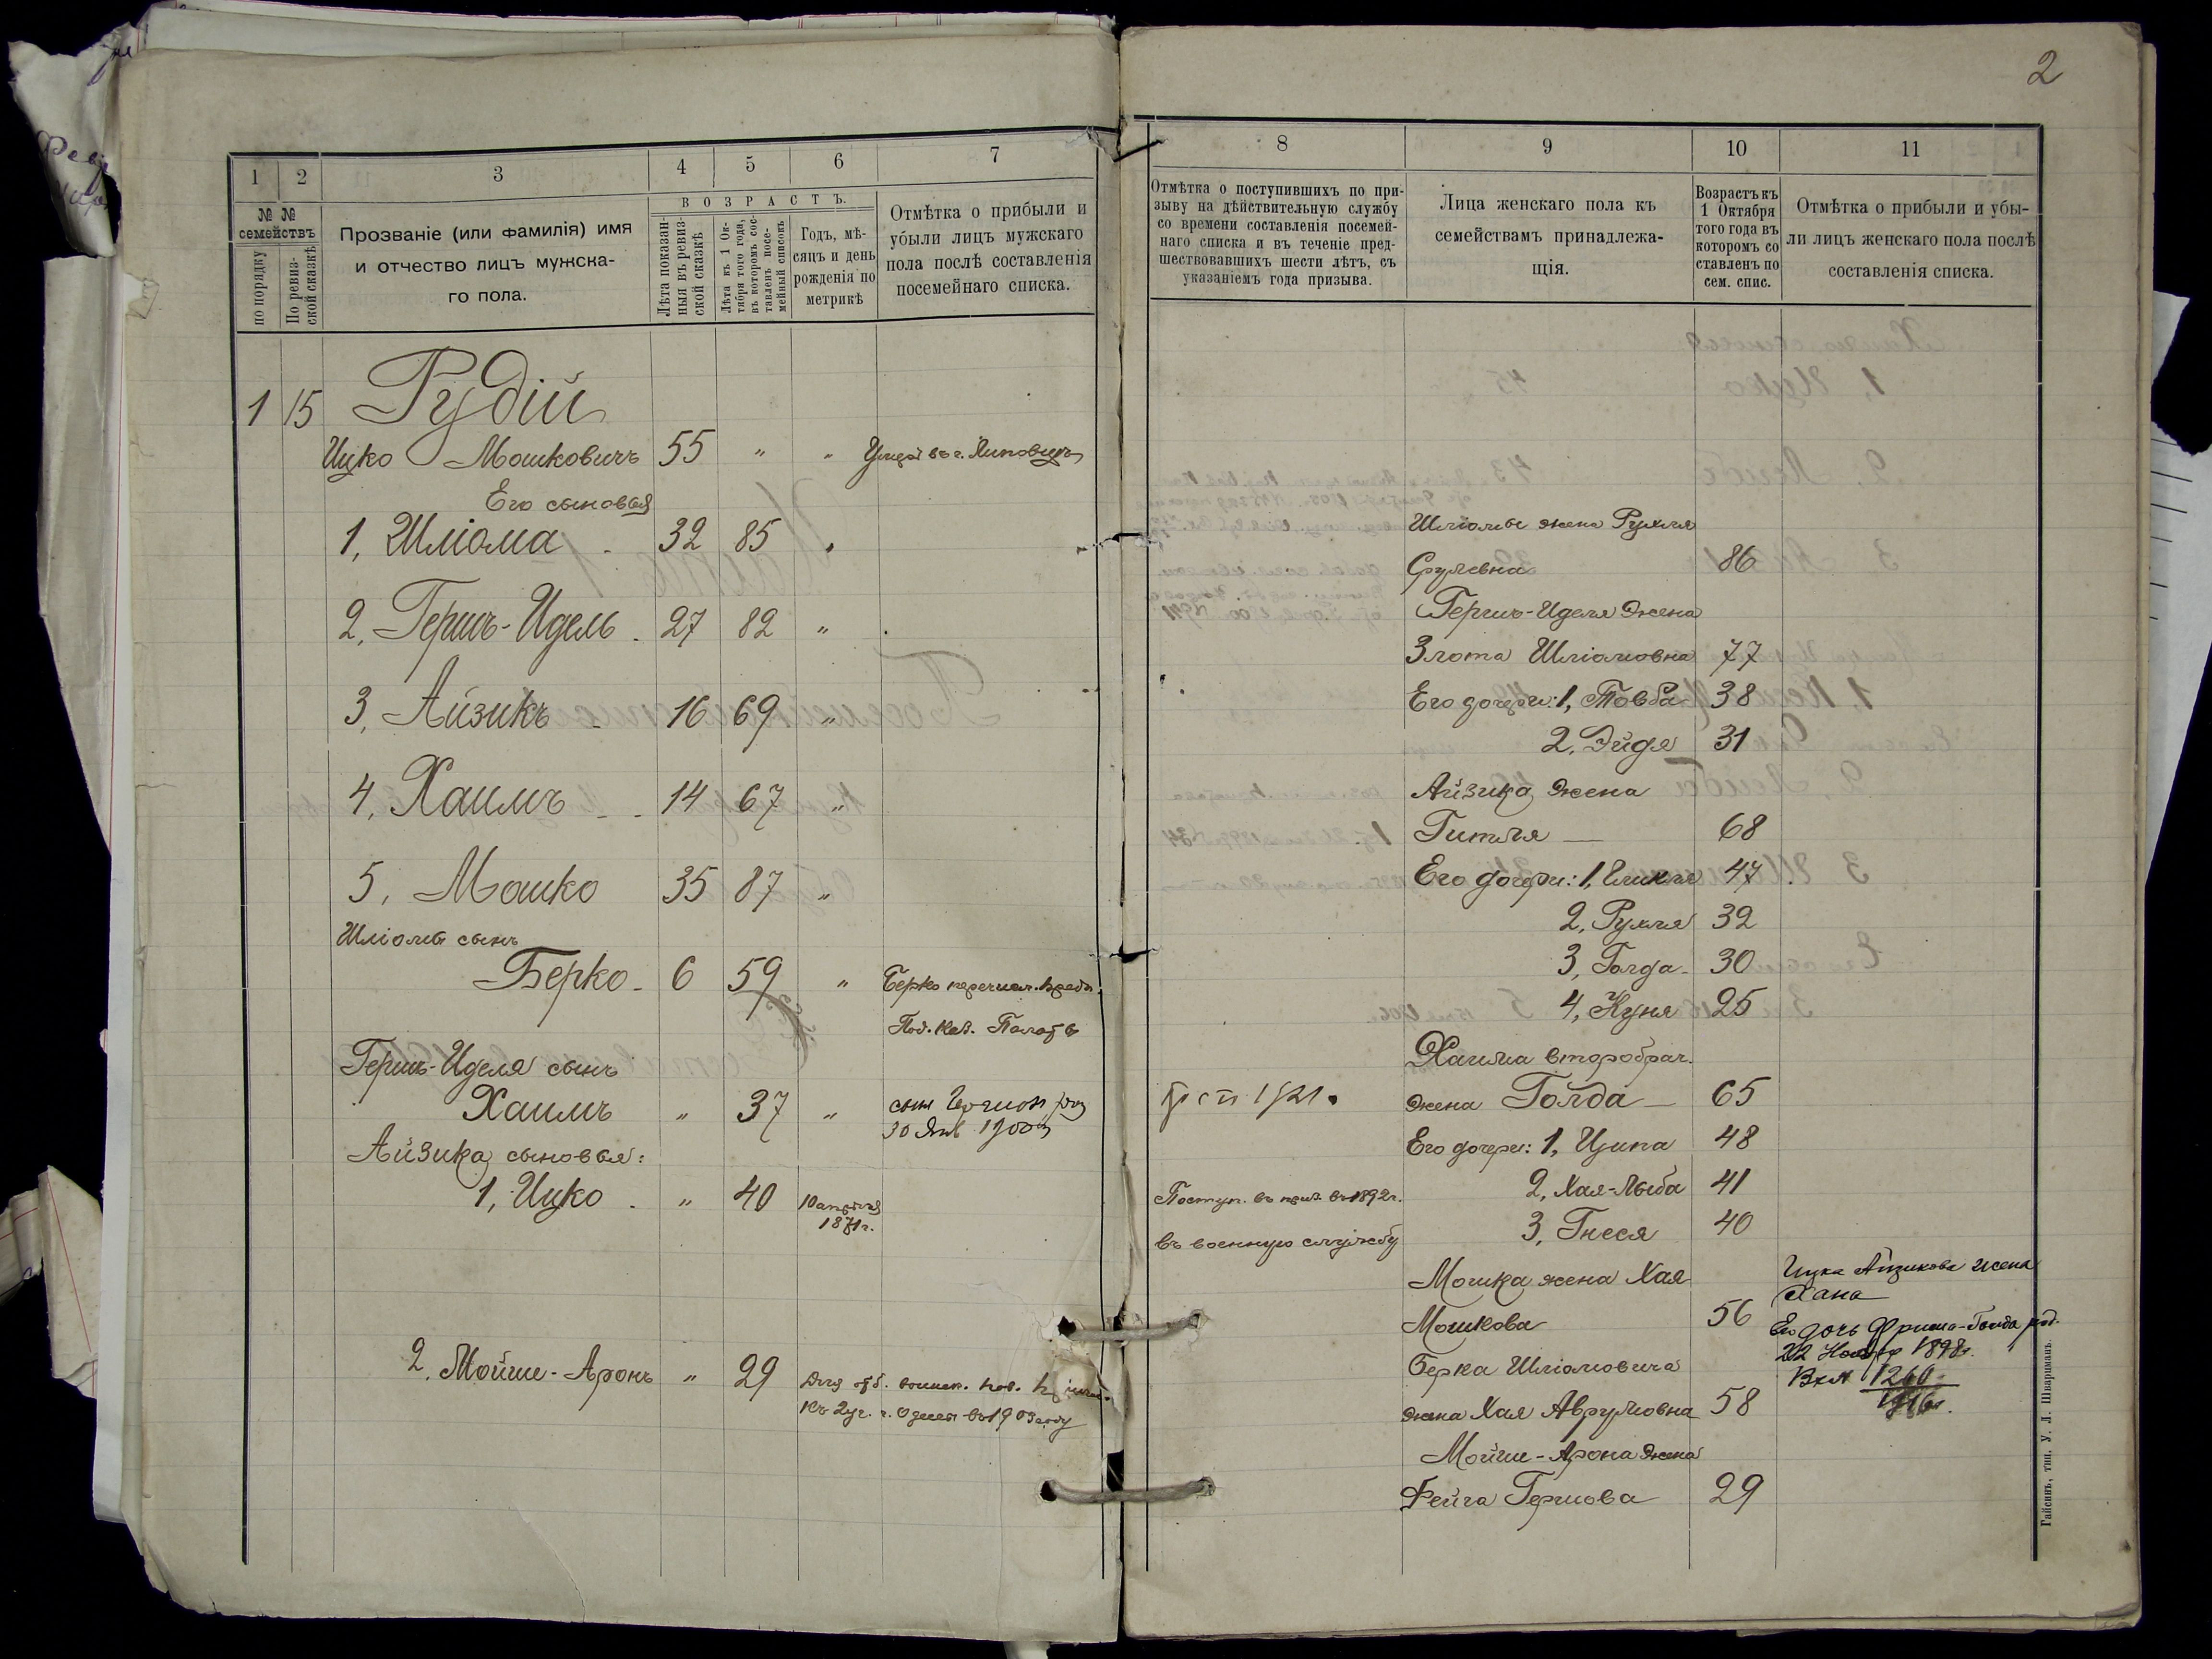 2
1
2
3
4
5
6
7
№ №
семействъ
по порядку
По ревиз-
ской сказкѣ
Прозваніе (или фамилія) имя
и отчество лицъ мужска-
го пола.
ВОЗРАСТЪ.
Лѣта показан-
ныя въ ревиз-
ской сказкѣ
Лѣта къ 1 Ок-
тября того года,
въ которомъ сос-
тавленъ посе-
мейный списокъ
Годъ, мѣ-
сяцъ и день
рожденія по
метрикѣ
Отмѣтка о прибыли и
убыли лицъ мужскаго
пола послѣ составленія
посемейнаго списка.
1 15 Рудій
Ицко Мошковичъ 55 " "
Его сыновья
1, Шліома 32 85 "
2, Гершъ-Идель 27 82 "
3, Айзикъ 16 69 "
4, Хаимъ 14 67 "
5, Мошко 35 87 "
Шліомы сынъ
Берко 6 59 " Берко перечисл.
Под. Каз. Палатѣ
Гершъ-Иделя сынъ
Хаимъ " 37 " сынъ
30 Янв 1900
Айзика сыновья:
1, Ицко " 40 10 апрѣля
1871 г.
2, Мойше-Аронъ " 29 Для отб. воинск. пов.
къ 2 уч. г. Одессы въ 1903 году
8
9
10
11
Отмѣтка о поступившихъ по при-
зыву на дѣйствительную службу
со времени составленія посемей-
наго списка и въ теченіе пред-
шествовавшихъ шести лѣтъ, съ
указаніемъ года призыва.
Лица женскаго пола къ
семействамъ принадлежа-
щія.
Возрастъ къ
1 Октября
того года въ
которомъ со
ставленъ по
сем. спис.
Отмѣтка о прибыли и убы-
ли лицъ женскаго пола послѣ
составленія списка.
Шліомы жена Рухля
Срулевна 86
Гершъ-Иделя жена
Злота Шліомовна 77
Его дочери: 1, Товба 38
2, Эйдя 31
Айзика жена
Гитля 68
Его дочери: 1, 47
2, Рухля 32
3, Голда 30
4, Куня 25
Хаима второбрач.
жена Голда 65
Его дочери: 1, Ципа 48
Поступ. въ приз. въ 1892 г. 2, Хая-Лыба 41
въ военную службу 3, Гнеся 40
Мошка жена Хая
Мошкова 56
Берка Шліомовича
жена Хая Аврумовна 58
Мойше-Арона жена
Фейга Гершова 29
Ицка Айзикова жена
Хана
Его дочь Фрима-Голда род.
22 1898 г.
1260
1916 г.
Гайсинъ, тип. У. Л. Шварцманъ.